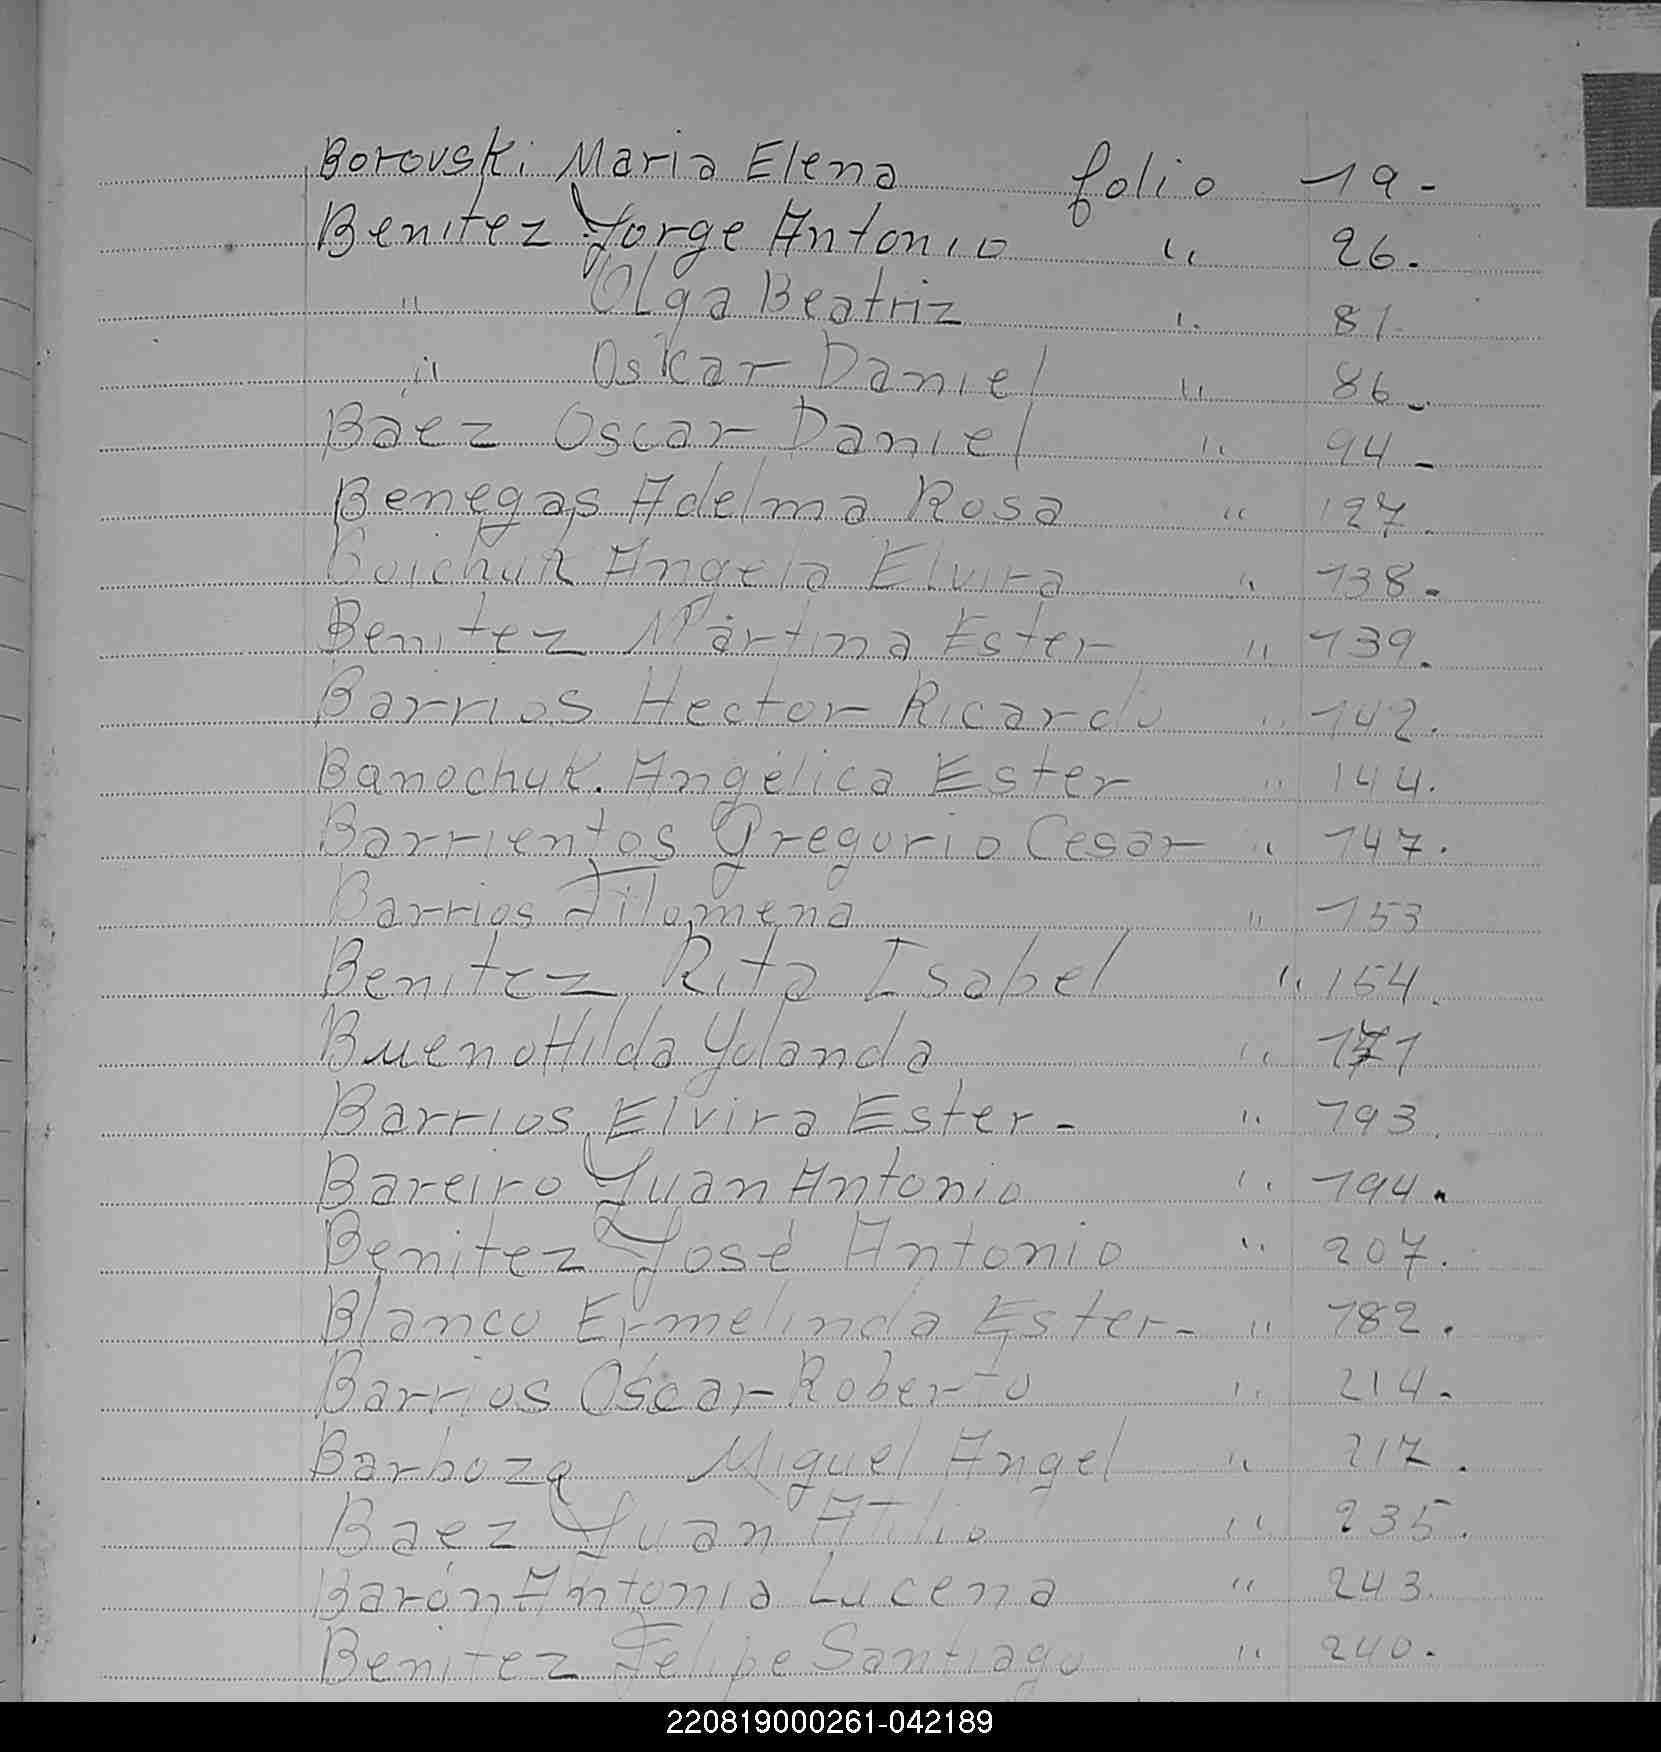 Borovski Maria Elena folio 19-
Benitez Jorge Antonio " 26.
" Olga Beatriz " 81.
" Oskar Daniel " 86-
Báez Oscar Daniel " 94-
Benegas Adelma Rosa " 127.
Boichuk Angela Elvira " 138.
Benitez Martina Ester " 139.
Barrios Hector Ricardo " 142.
Banochuk. Angélica Ester " 144.
Barrientos Gregorio Cesar " 147.
Barrios Filomena " 153
Benitez Rita Isabel " 154.
Bueno Hilda Yolanda " 171
Barrios Elvira Ester- " 193.
Bareiro Juan Antonio " 194.
Benitez José Antonio " 207.
Blanco Ermelinda Ester- " 182.
Barrios Oscar Roberto " 214-
Barboza Miguel Angel " 217.
Baez Juan Atilio " 235.
Barón Antonia Lucena " 243.
Benitez Felipe Santiago " 240.
220819000261-042189